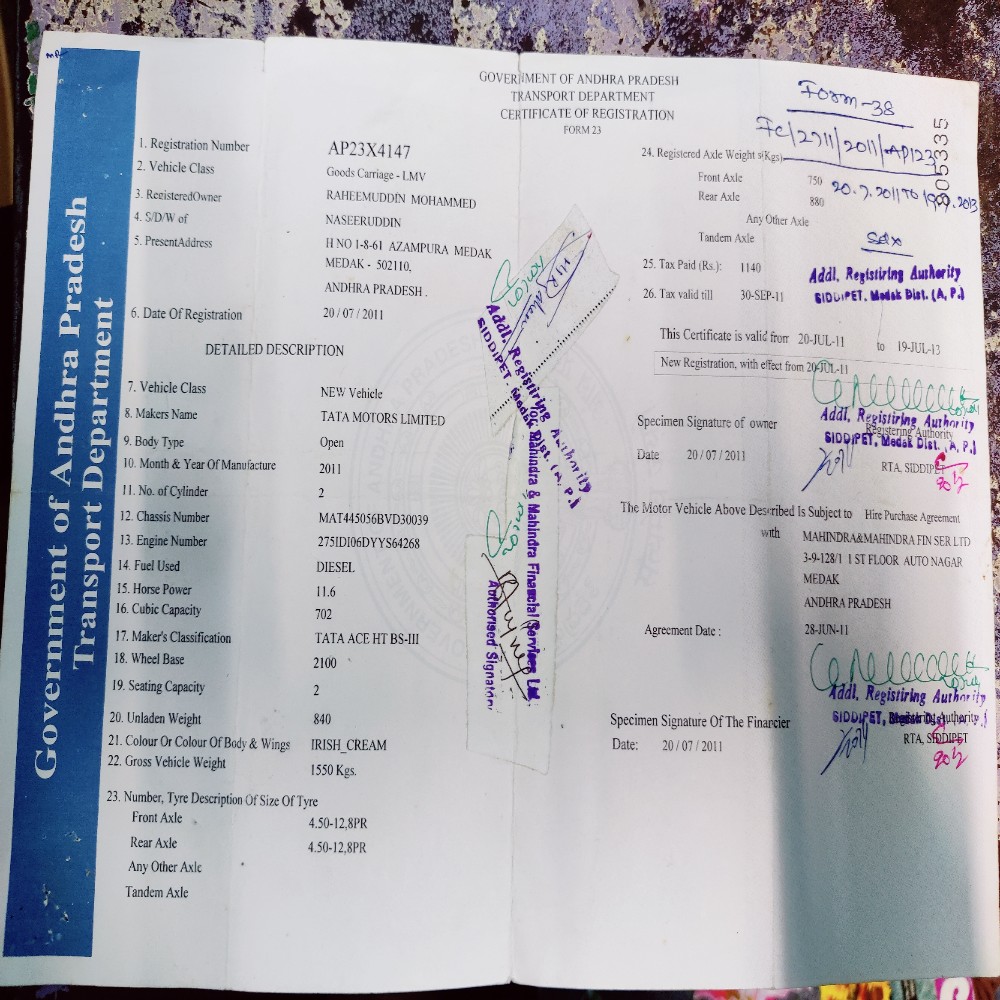 Government of Andhra Pradesh
Transport Department
GOVERNMENT OF ANDHRA PRADESH
TRANSPORT DEPARTMENT
CERTIFICATE OF REGISTRATION
FORM 23
1. Registration Number AP23X4147
2. Vehicle Class Goods Carriage - LMV
3. RegisteredOwner RAHEEMUDDIN MOHAMMED
4. S/D/W of NASEERUDDIN
5. PresentAddress H NO 1-8-61 AZAMPURA MEDAK
MEDAK - 502110,
ANDHRA PRADESH .
6. Date Of Registration 20 / 07 / 2011
DETAILED DESCRIPTION
7. Vehicle Class NEW Vehicle
8. Makers Name TATA MOTORS LIMITED
9. Body Type Open
10. Month & Year Of Manufacture 2011
11. No. of Cylinder 2
12. Chassis Number MAT445056BVD30039
13. Engine Number 275IDI06DYYS64268
14. Fuel Used DIESEL
15. Horse Power 11.6
16. Cubic Capacity 702
17. Maker's Classification TATA ACE HT BS-III
18. Wheel Base 2100
19. Seating Capacity 2
20. Unladen Weight 840
21. Colour Or Colour Of Body & Wings IRISH_CREAM
22. Gross Vehicle Weight 1550 Kgs.
23. Number, Tyre Description Of Size Of Tyre
Front Axle 4.50-12,8PR
Rear Axle 4.50-12,8PR
Any Other Axle
Tandem Axle
Addl. Registiring Authority
SIDDIPET, Medak Dist. (A. P.)
Mahindra & Mahindra Financial Services Ltd.
Authorised Signatory
Form-38
Fc/2711/2011/AP123
24. Registered Axle Weight s(Kgs)
Front Axle 750
Rear Axle 880
20.7.2011 TO 19.7.2013
Any Other Axle
Tandem Axle
Sdx
25. Tax Paid (Rs.): 1140
26. Tax valid till 30-SEP-11
Addl. Registiring Authority
SIDDIPET, Medak Dist. (A. P.)
This Certificate is valid from 20-JUL-11 to 19-JUL-13
New Registration, with effect from 20-JUL-11
Specimen Signature of owner
Addl. Registiring Authority
Registering Authority
SIDDIPET, Medak Dist. (A. P.)
Date 20 / 07 / 2011
RTA, SIDDIPET
The Motor Vehicle Above Described Is Subject to Hire Purchase Agreement
with MAHINDRA&MAHINDRA FIN SER LTD
3-9-128/1 1 ST FLOOR AUTO NAGAR
MEDAK
ANDHRA PRADESH
Agreement Date : 28-JUN-11
Addl. Registiring Authority
Specimen Signature Of The Financier
SIDDIPET,
Registering Authority
Date: 20 / 07 / 2011
RTA, SIDDIPET